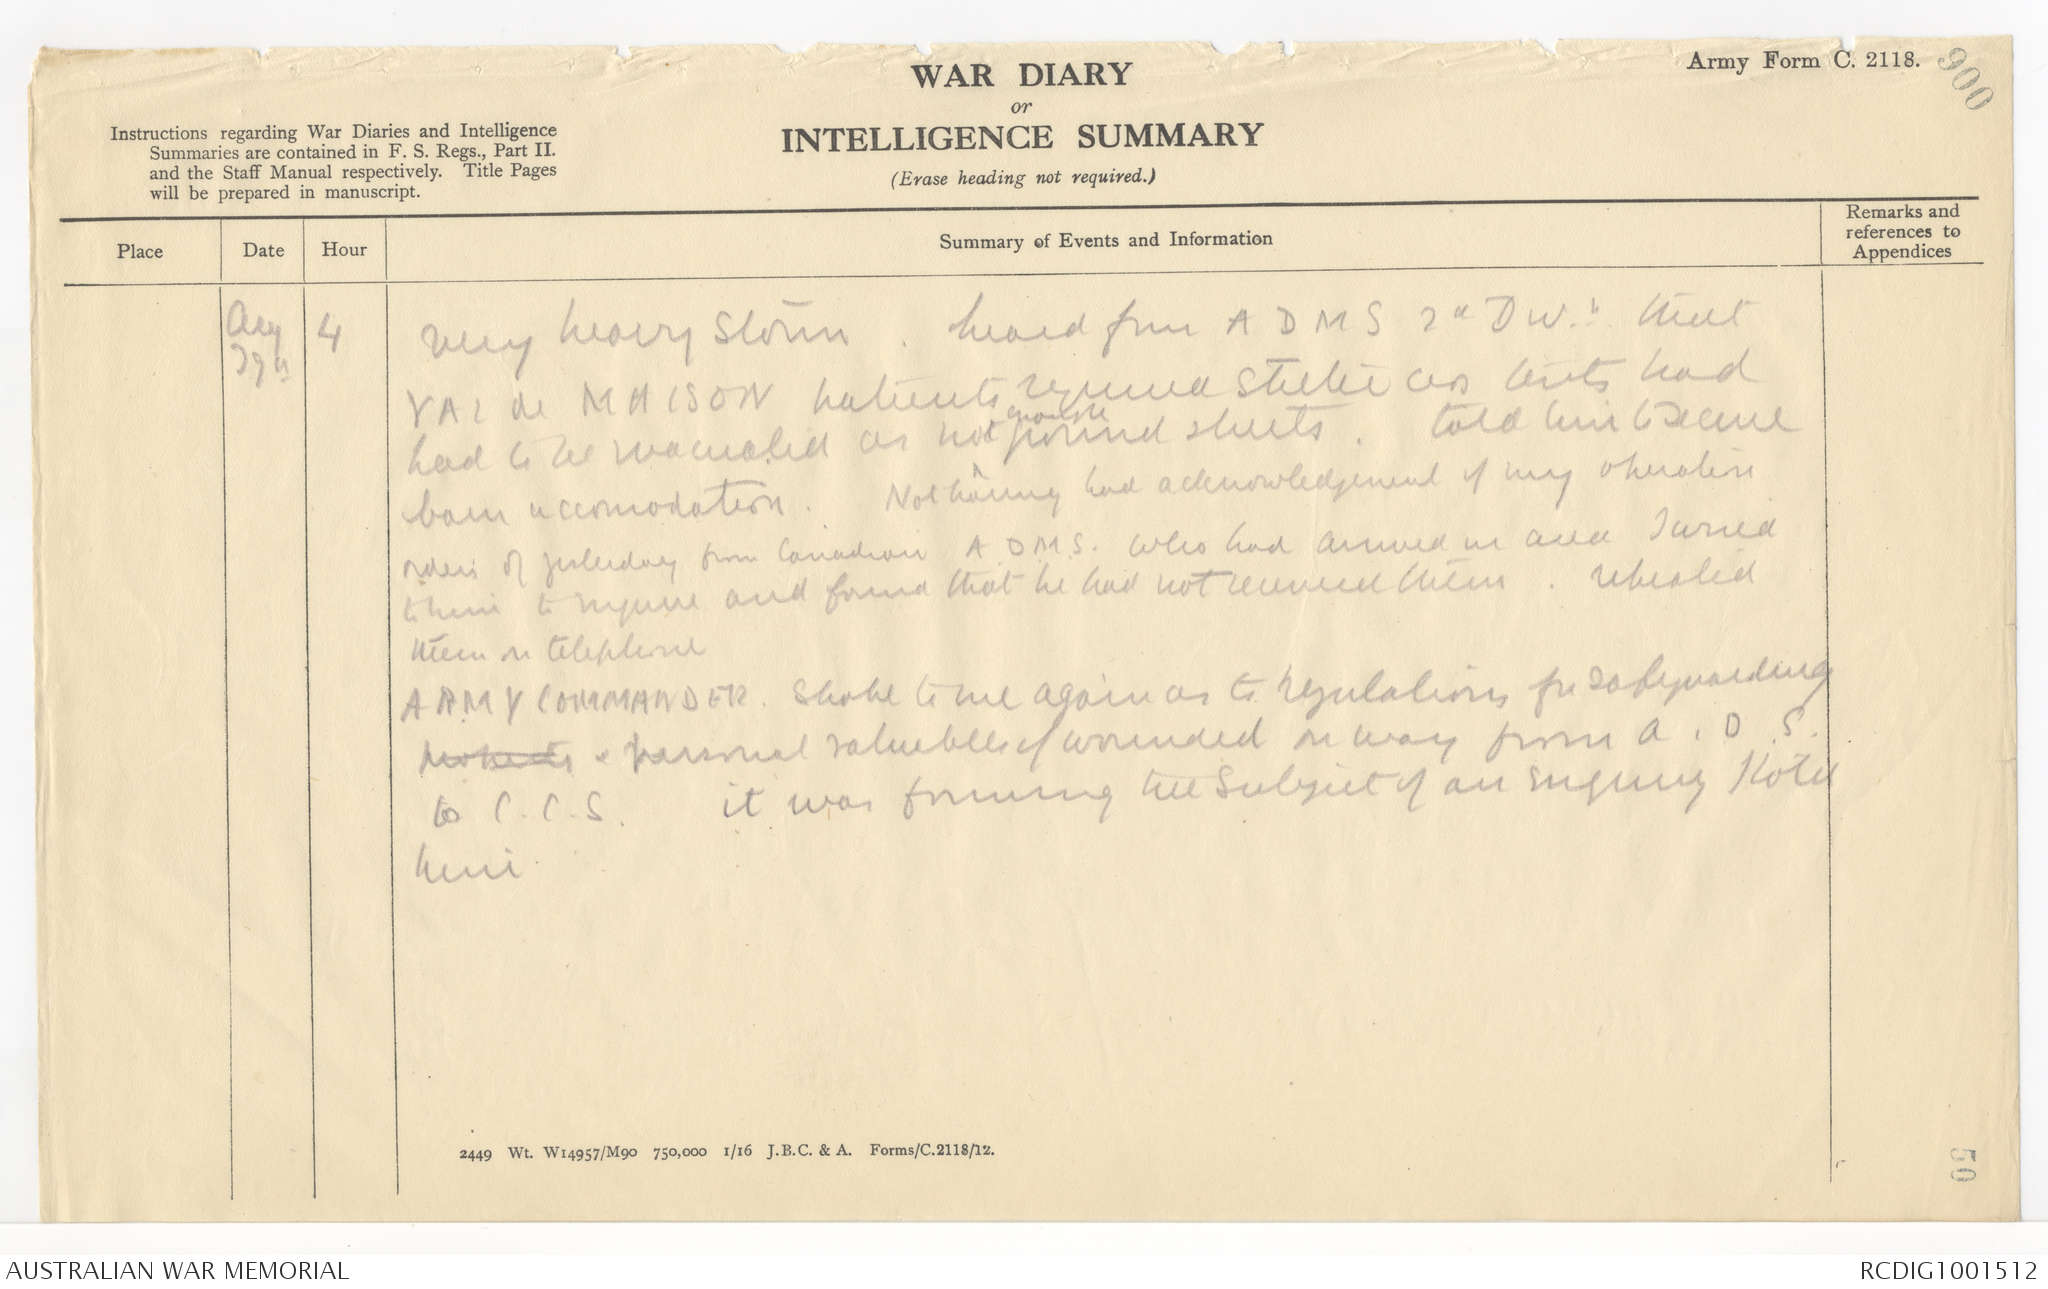 Army Form C. 2118.
900
WAR DIARY
or
INTELLIGENCE SUMMARY
(Erase heading not required.)
Instructions regarding War Diaries and Intelligence
Summaries are contained in F. S. Regs., Part II.
and the Staff Manual respectively. Title Pages
will be prepared in manuscript.
Place
Date
Hour
Summary of Events and Information
Remarks and
references to
Appendices
Aug 4 very heavy storm. heard from A D M S 2nd that
29th VAL de MAISON patients required shelter as tents had
enough
had to be evacuated as not ground sheets. told him to secure
barn accomodation. Not having had acknowledgement of my operation
orders of yesterday from Canadian A D M S. who had arrived in area I wired
to him to inquire and found that he had not received them. repeated
them on telephone
ARMY COMMANDER. spoke to me again as to regulations for safeguarding
personal valuables of wounded on way from A. D. S.
to C. C. S. it was forming the subject of an inquiry I told
him.
2449 Wt. W14957/M90 750,000 1/16 J.B.C. & A. Forms/C.2118/12.
50
AUSTRALIAN WAR MEMORIAL
RCDIG1001512